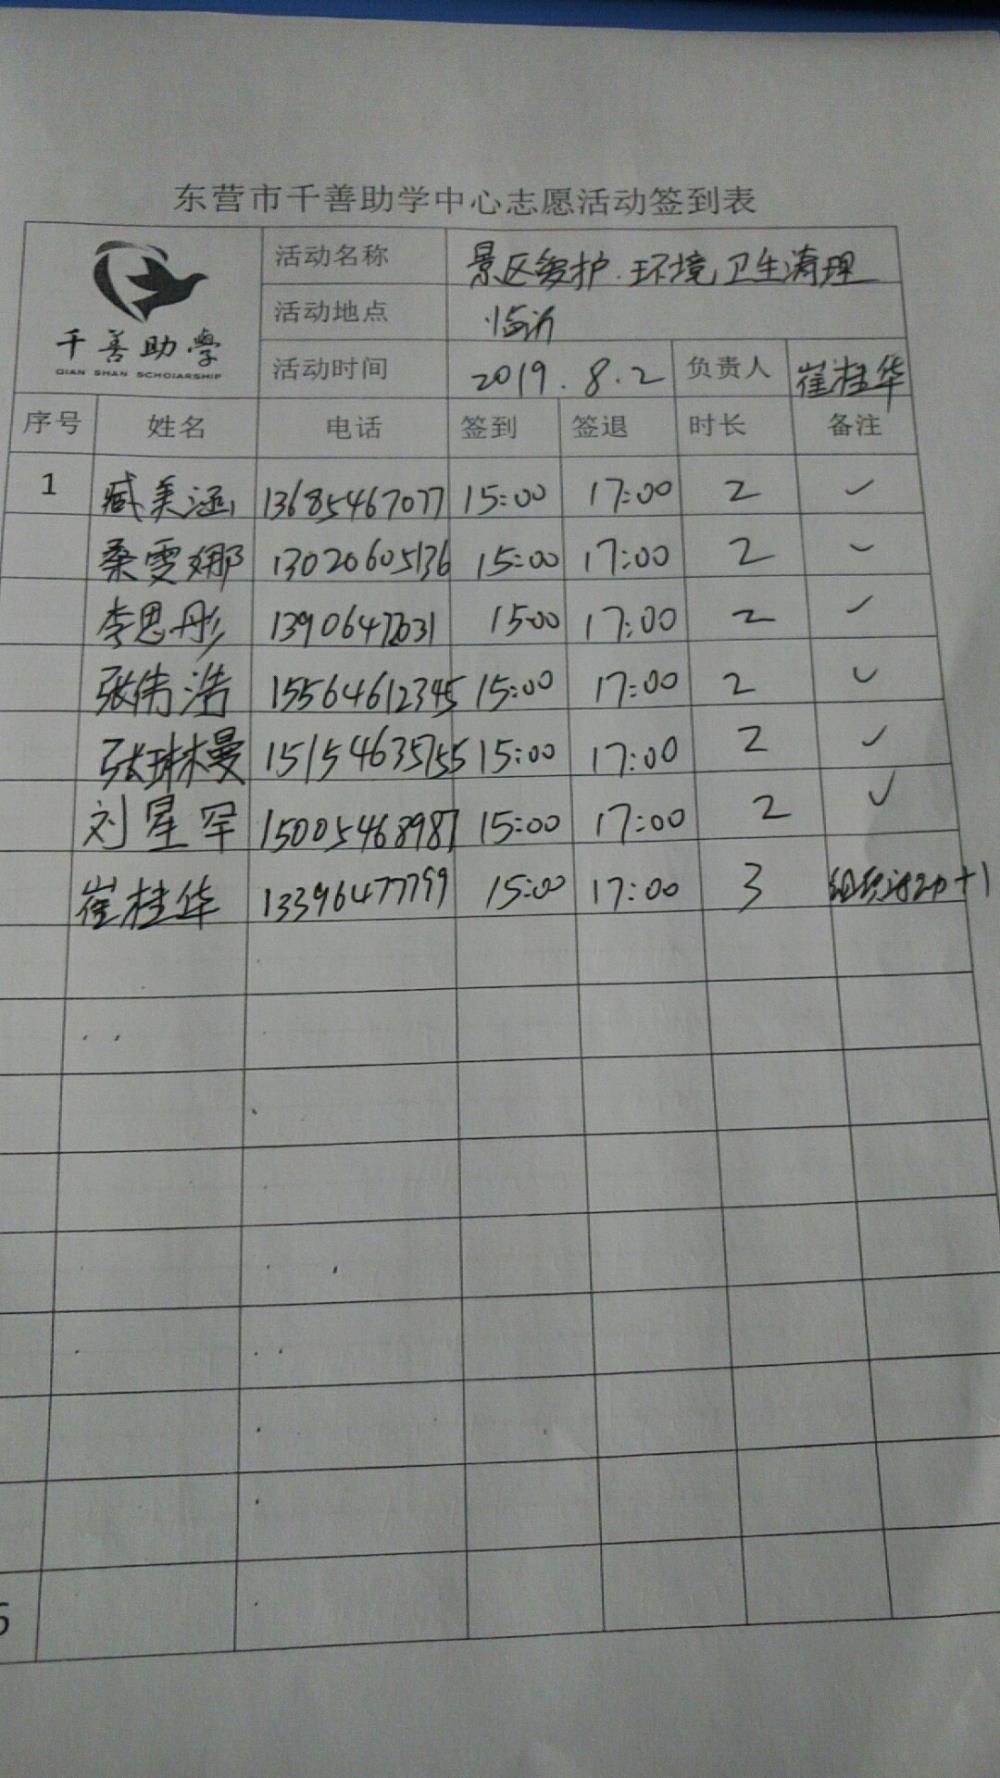 东营市千善助学中心志愿活动签到表
千善助學
QIAN SHAN SCHOIARSHIP
活动名称 景区爱护.环境卫生清理
活动地点 临沂
活动时间 2019.8.2 负责人 崔桂华
序号 姓名 电话 签到 签退 时长 备注
1 臧美涵 13685467077 15:00 17:00 2 ✓
桑雯娜 13020605136 15:00 17:00 2 ✓
李思彤 15:00 17:00 2 ✓
张伟浩 15564612345 15:00 17:00 2 ✓
张琳曼 15154635755 15:00 17:00 2 ✓
刘星罕 15005468987 15:00 17:00 2 ✓
崔桂华 13396477799 15:00 17:00 3 组织活动+1